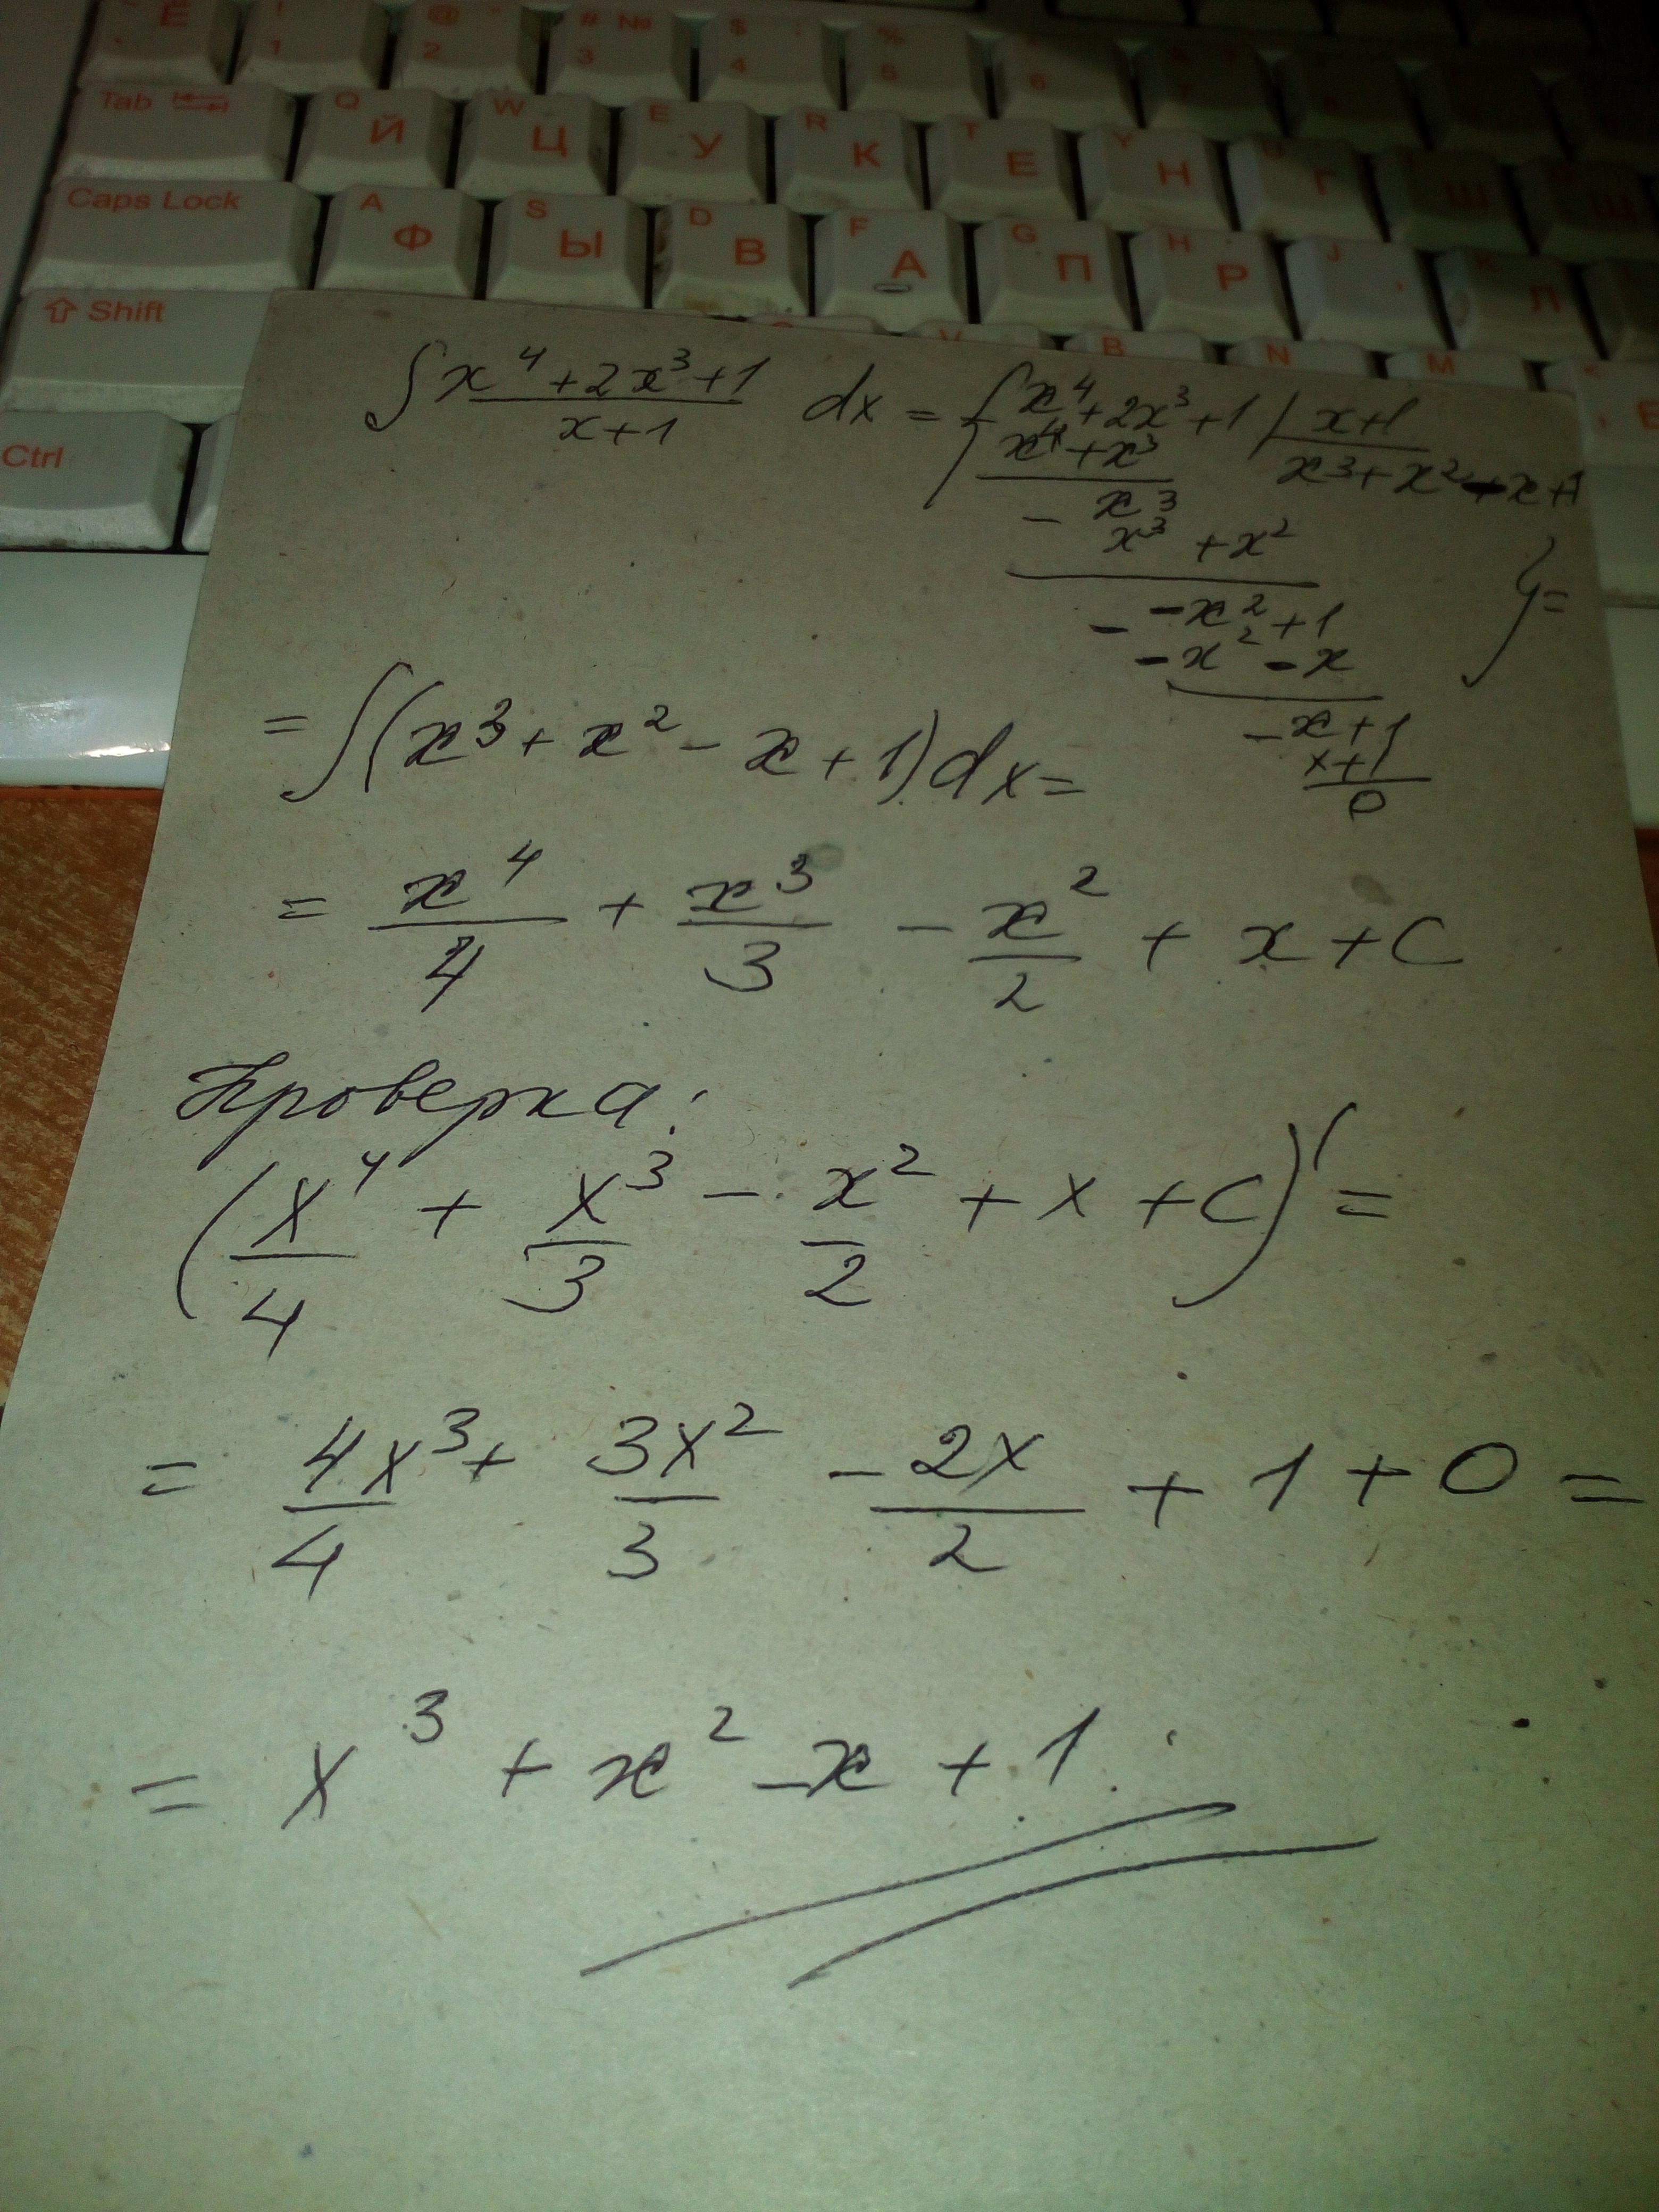 Ё
! 1
@ " 2
# № 3
$ ; 4
% 5
6
7
Tab Q Й W Ц E У R К T Е Y Н U Г Ш Щ
Caps Lock A Ф S Ы D В F А G П H Р J K Л
Shift V B N M <
Ctrl
∫ x⁴+2x³+1 / x+1 dx = ∫ x⁴+2x³+1 | x+1
x⁴+x³ x³+x²-x+1
- x³
x³ +x²
- -x²+1 =
-x²-x
- x+1
x+1
0
= ∫(x³+x²-x+1)dx=
= x⁴/4 + x³/3 - x²/2 + x + C
Проверка:
(x⁴/4 + x³/3 - x²/2 + x + C)′ =
= 4x³/4 + 3x²/3 - 2x/2 + 1 + 0 =
= x³ + x² - x + 1.